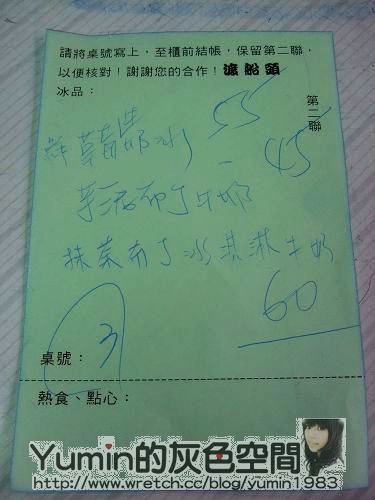 請將桌號寫上，至櫃前結帳，保留第二聯，
以便核對！謝謝您的合作！渡船頭
冰品：
第二聯
鮮草莓奶冰 55
芋泥布丁牛奶 45
抹茶布丁冰淇淋牛奶
60
桌號：3
熱食、點心：
Yumin的灰色空間
http://www.wretch.cc/blog/yumin1983